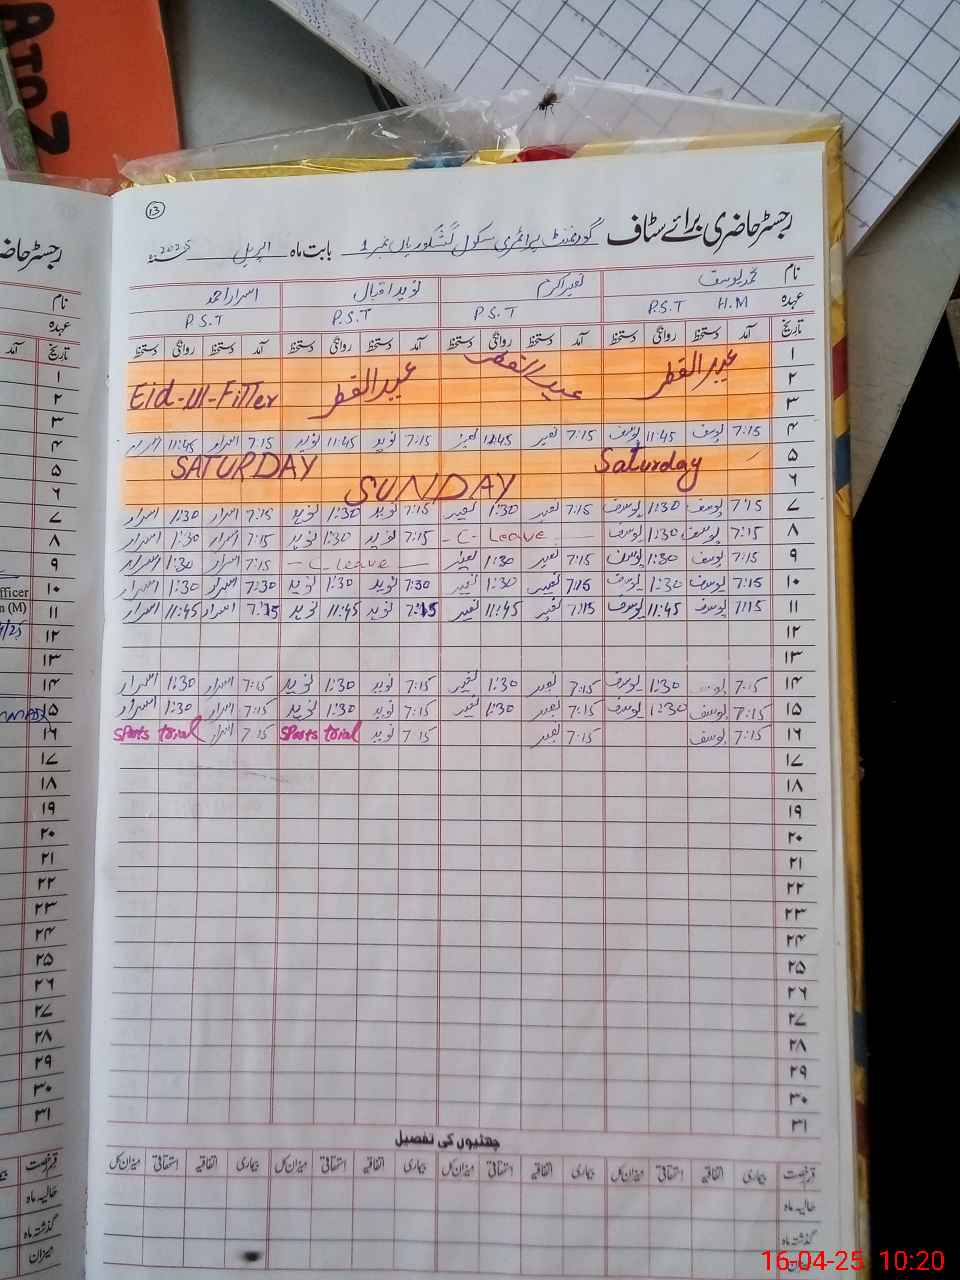 A TO Z
13
رجسٹر حاضری برائے سٹاف گورنمنٹ پرائمری سکول نمبر 1 بابت ماہ اپریل 2025ء
نام محمد یوسف نصیر اکرم نوید اقبال اسرار احمد
عہدہ H.M P.S.T P.S.T P.S.T P.S.T
تاریخ آمد دستخط روانگی دستخط آمد دستخط روانگی دستخط آمد دستخط روانگی دستخط آمد دستخط روانگی دستخط
۱
۲ عید الفطر عید الفطر عید الفطر Eid-Ul-Fitter
۳
۴ 7:15 یوسف 11:45 یوسف 7:15 نصیر 11:45 نصیر 7:15 نوید 11:45 نوید 7:15 اسرار 11:45 اسرار
۵ Saturday SATURDAY
۶ SUNDAY
۷ 7:15 یوسف 1:30 یوسف 7:15 نصیر 1:30 نصیر 7:15 نوید 1:30 نوید 7:15 اسرار 1:30 اسرار
۸ 7:15 یوسف 1:30 یوسف - C. Leave - 7:15 نوید 1:30 نوید 7:15 اسرار 1:30 اسرار
۹ 7:15 یوسف 1:30 یوسف 7:15 نصیر 1:30 نصیر - C. Leave - 7:15 اسرار 1:30 اسرار
۱۰ 7:15 یوسف 1:30 یوسف 7:15 نصیر 1:30 نصیر 7:30 نوید 1:30 نوید 7:30 اسرار 1:30 اسرار
۱۱ 7:15 یوسف 11:45 یوسف 7:15 نصیر 11:45 نصیر 7:15 نوید 11:45 نوید 7:15 اسرار 11:45 اسرار
۱۲
۱۳
۱۴ 7:15 یوسف 1:30 یوسف 7:15 نصیر 1:30 نصیر 7:15 نوید 1:30 نوید 7:15 اسرار 1:30 اسرار
۱۵ 7:15 یوسف 1:30 یوسف 7:15 نصیر 1:30 نصیر 7:15 نوید 1:30 نوید 7:15 اسرار 1:30 اسرار
۱۶ 7:15 یوسف 7:15 نصیر 7:15 نوید Sports trial 7:15 اسرار Sports trial
۱۷
۱۸
۱۹
۲۰
۲۱
۲۲
۲۳
۲۴
۲۵
۲۶
۲۷
۲۸
۲۹
۳۰
۳۱
چھٹیوں کی تفصیل
قسم رخصت بیماری اتفاقیہ استحقاقی میزان کل بیماری اتفاقیہ استحقاقی میزان کل بیماری اتفاقیہ استحقاقی میزان کل بیماری اتفاقیہ استحقاقی میزان کل
حالیہ ماہ
گذشتہ ماہ
میزان
رجسٹر حاضری
نام
عہدہ
تاریخ آمد
۱
۲
۳
۴
۵
۶
۷
۸
۹
۱۰
fficer
(M)
۱۱
۱۲
۱۳
۱۴
۱۵
۱۶
۱۷
۱۸
۱۹
۲۰
۲۱
۲۲
۲۳
۲۴
۲۵
۲۶
۲۷
۲۸
۲۹
۳۰
۳۱
قسم رخصت
حالیہ ماہ
گذشتہ ماہ
میزان
16-04-25 10:20